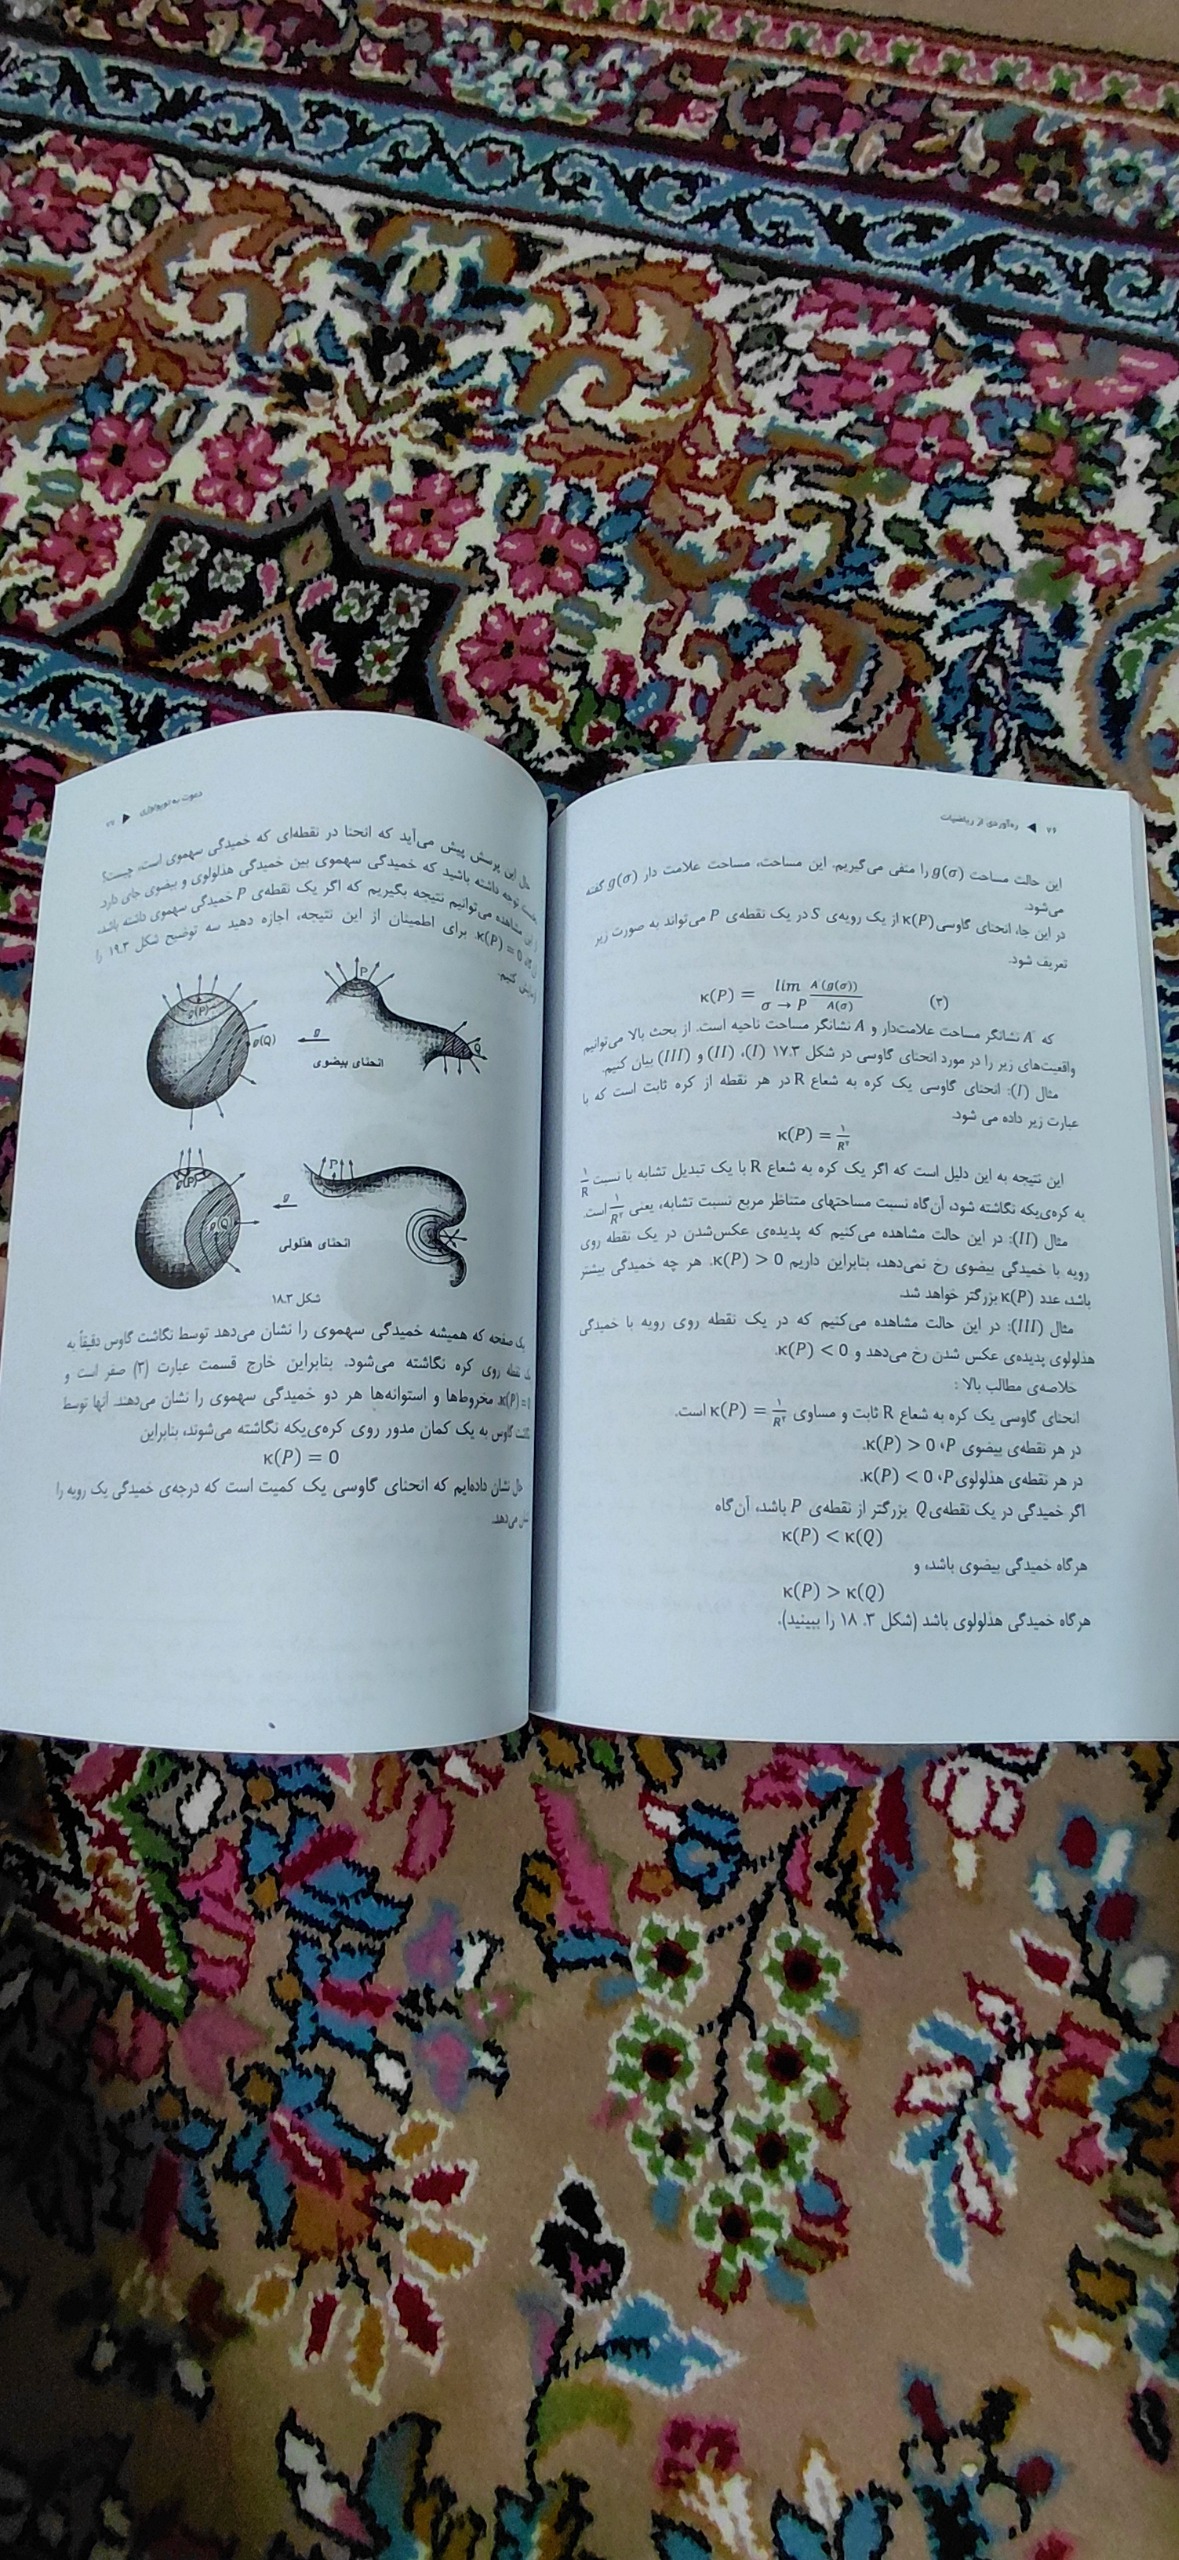 ۷۶ ◀ ره‌آوردی از ریاضیات
این حالت مساحت g(σ) را منفی می‌گیریم. این مساحت، مساحت علامت دار g(σ) گفته
می‌شود.
در این جا، انحنای گاوسی κ(P) از یک رویه‌ی S در یک نقطه‌ی P می‌تواند به صورت زیر
تعریف شود.
κ(P) = lim σ → P A(g(σ)) / A(σ) (۳)
که A نشانگر مساحت علامت‌دار و A نشانگر مساحت ناحیه است. از بحث بالا می‌توانیم
واقعیت‌های زیر را در مورد انحنای گاوسی در شکل ۱۷.۳ (I)، (II) و (III) بیان کنیم.
مثال (I): انحنای گاوسی یک کره به شعاع R در هر نقطه از کره ثابت است که با
عبارت زیر داده می شود.
κ(P) = ۱/R۲
این نتیجه به این دلیل است که اگر یک کره به شعاع R با یک تبدیل تشابه با نسبت ۱/R
به کره‌ی‌یکه نگاشته شود، آن‌گاه نسبت مساحتهای متناظر مربع نسبت تشابه، یعنی ۱/R۲ است.
مثال (II): در این حالت مشاهده می‌کنیم که پدیده‌ی عکس‌شدن در یک نقطه روی
رویه با خمیدگی بیضوی رخ نمی‌دهد، بنابراین داریم κ(P) > 0. هر چه خمیدگی بیشتر
باشد، عدد κ(P) بزرگتر خواهد شد.
مثال (III): در این حالت مشاهده می‌کنیم که در یک نقطه روی رویه با خمیدگی
هذلولوی پدیده‌ی عکس شدن رخ می‌دهد و κ(P) < 0.
خلاصه‌ی مطالب بالا :
انحنای گاوسی یک کره به شعاع R ثابت و مساوی κ(P) = ۱/R۲ است.
در هر نقطه‌ی بیضوی P، κ(P) > 0.
در هر نقطه‌ی هذلولوی P، κ(P) < 0.
اگر خمیدگی در یک نقطه‌ی Q بزرگتر از نقطه‌ی P باشد، آن‌گاه
κ(P) < κ(Q)
هرگاه خمیدگی بیضوی باشد، و
κ(P) > κ(Q)
هرگاه خمیدگی هذلولوی باشد (شکل ۳. ۱۸ را ببینید).
دعوت به توپولوژی ◀ ۷۷
حال این پرسش پیش می‌آید که انحنا در نقطه‌ای که خمیدگی سهموی است، چیست؟
توجه داشته باشید که خمیدگی سهموی بین خمیدگی هذلولوی و بیضوی جای دارد.
مشاهده می‌توانیم نتیجه بگیریم که اگر یک نقطه‌ی P خمیدگی سهموی داشته باشد،
κ(P) = 0. برای اطمینان از این نتیجه، اجازه دهید سه توضیح شکل ۱۹.۳ را
کنیم.
P
g(P)
g(Q)
g
Q
انحنای بیضوی
P
g(P)
g(Q)
g
انحنای هذلولی
شکل ۱۸.۳
یک صفحه که همیشه خمیدگی سهموی را نشان می‌دهد توسط نگاشت گاوس دقیقاً به
یک نقطه روی کره نگاشته می‌شود. بنابراین خارج قسمت عبارت (۳) صفر است و
مخروط‌ها و استوانه‌ها هر دو خمیدگی سهموی را نشان می‌دهند. آنها توسط
نگاشت گاوس به یک کمان مدور روی کره‌ی‌یکه نگاشته می‌شوند، بنابراین
κ(P) = 0
حال نشان داده‌ایم که انحنای گاوسی یک کمیت است که درجه‌ی خمیدگی یک رویه را
نشان می‌دهد.